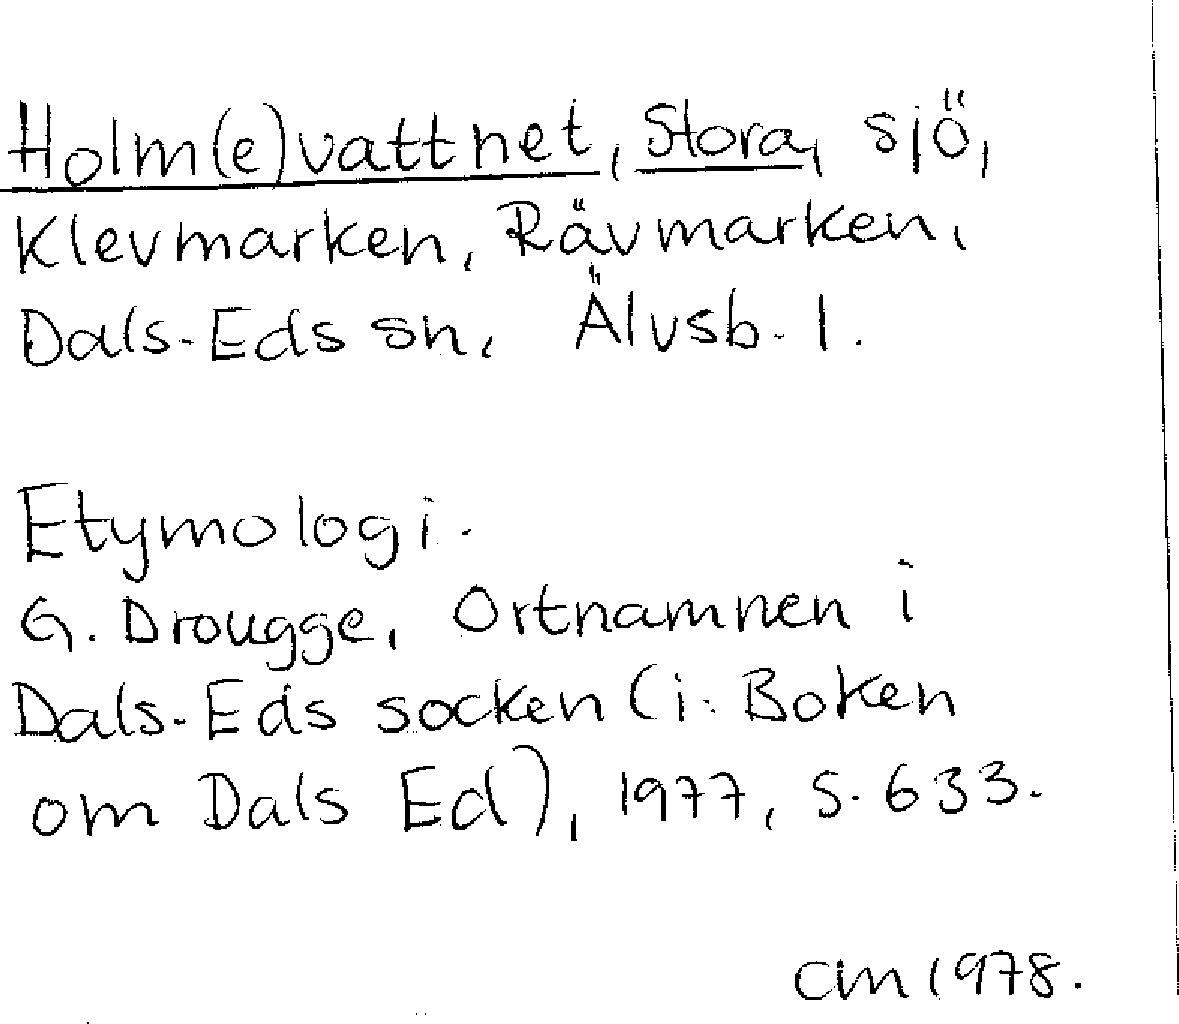 Holm(e)vattnet, Stora, sjö,
Klevmarken, Rävmarken,
Dals-Eds sn, Älvsb. l.
Etymologi.
G. Drougge, Ortnamnen i
Dals-Eds socken (i: Boken
om Dals Ed), 1977, s. 633.
CM 1978.